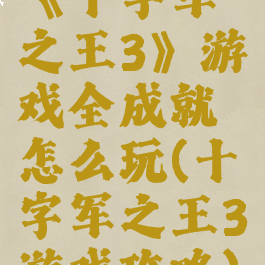 《十字军
之王3》游
戏全成就
怎么玩(十
字军之王3
游戏攻略)